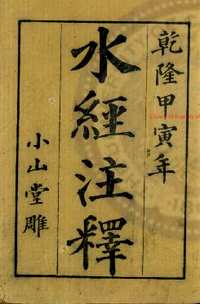 乾隆甲寅年
水經注釋
小山堂雕